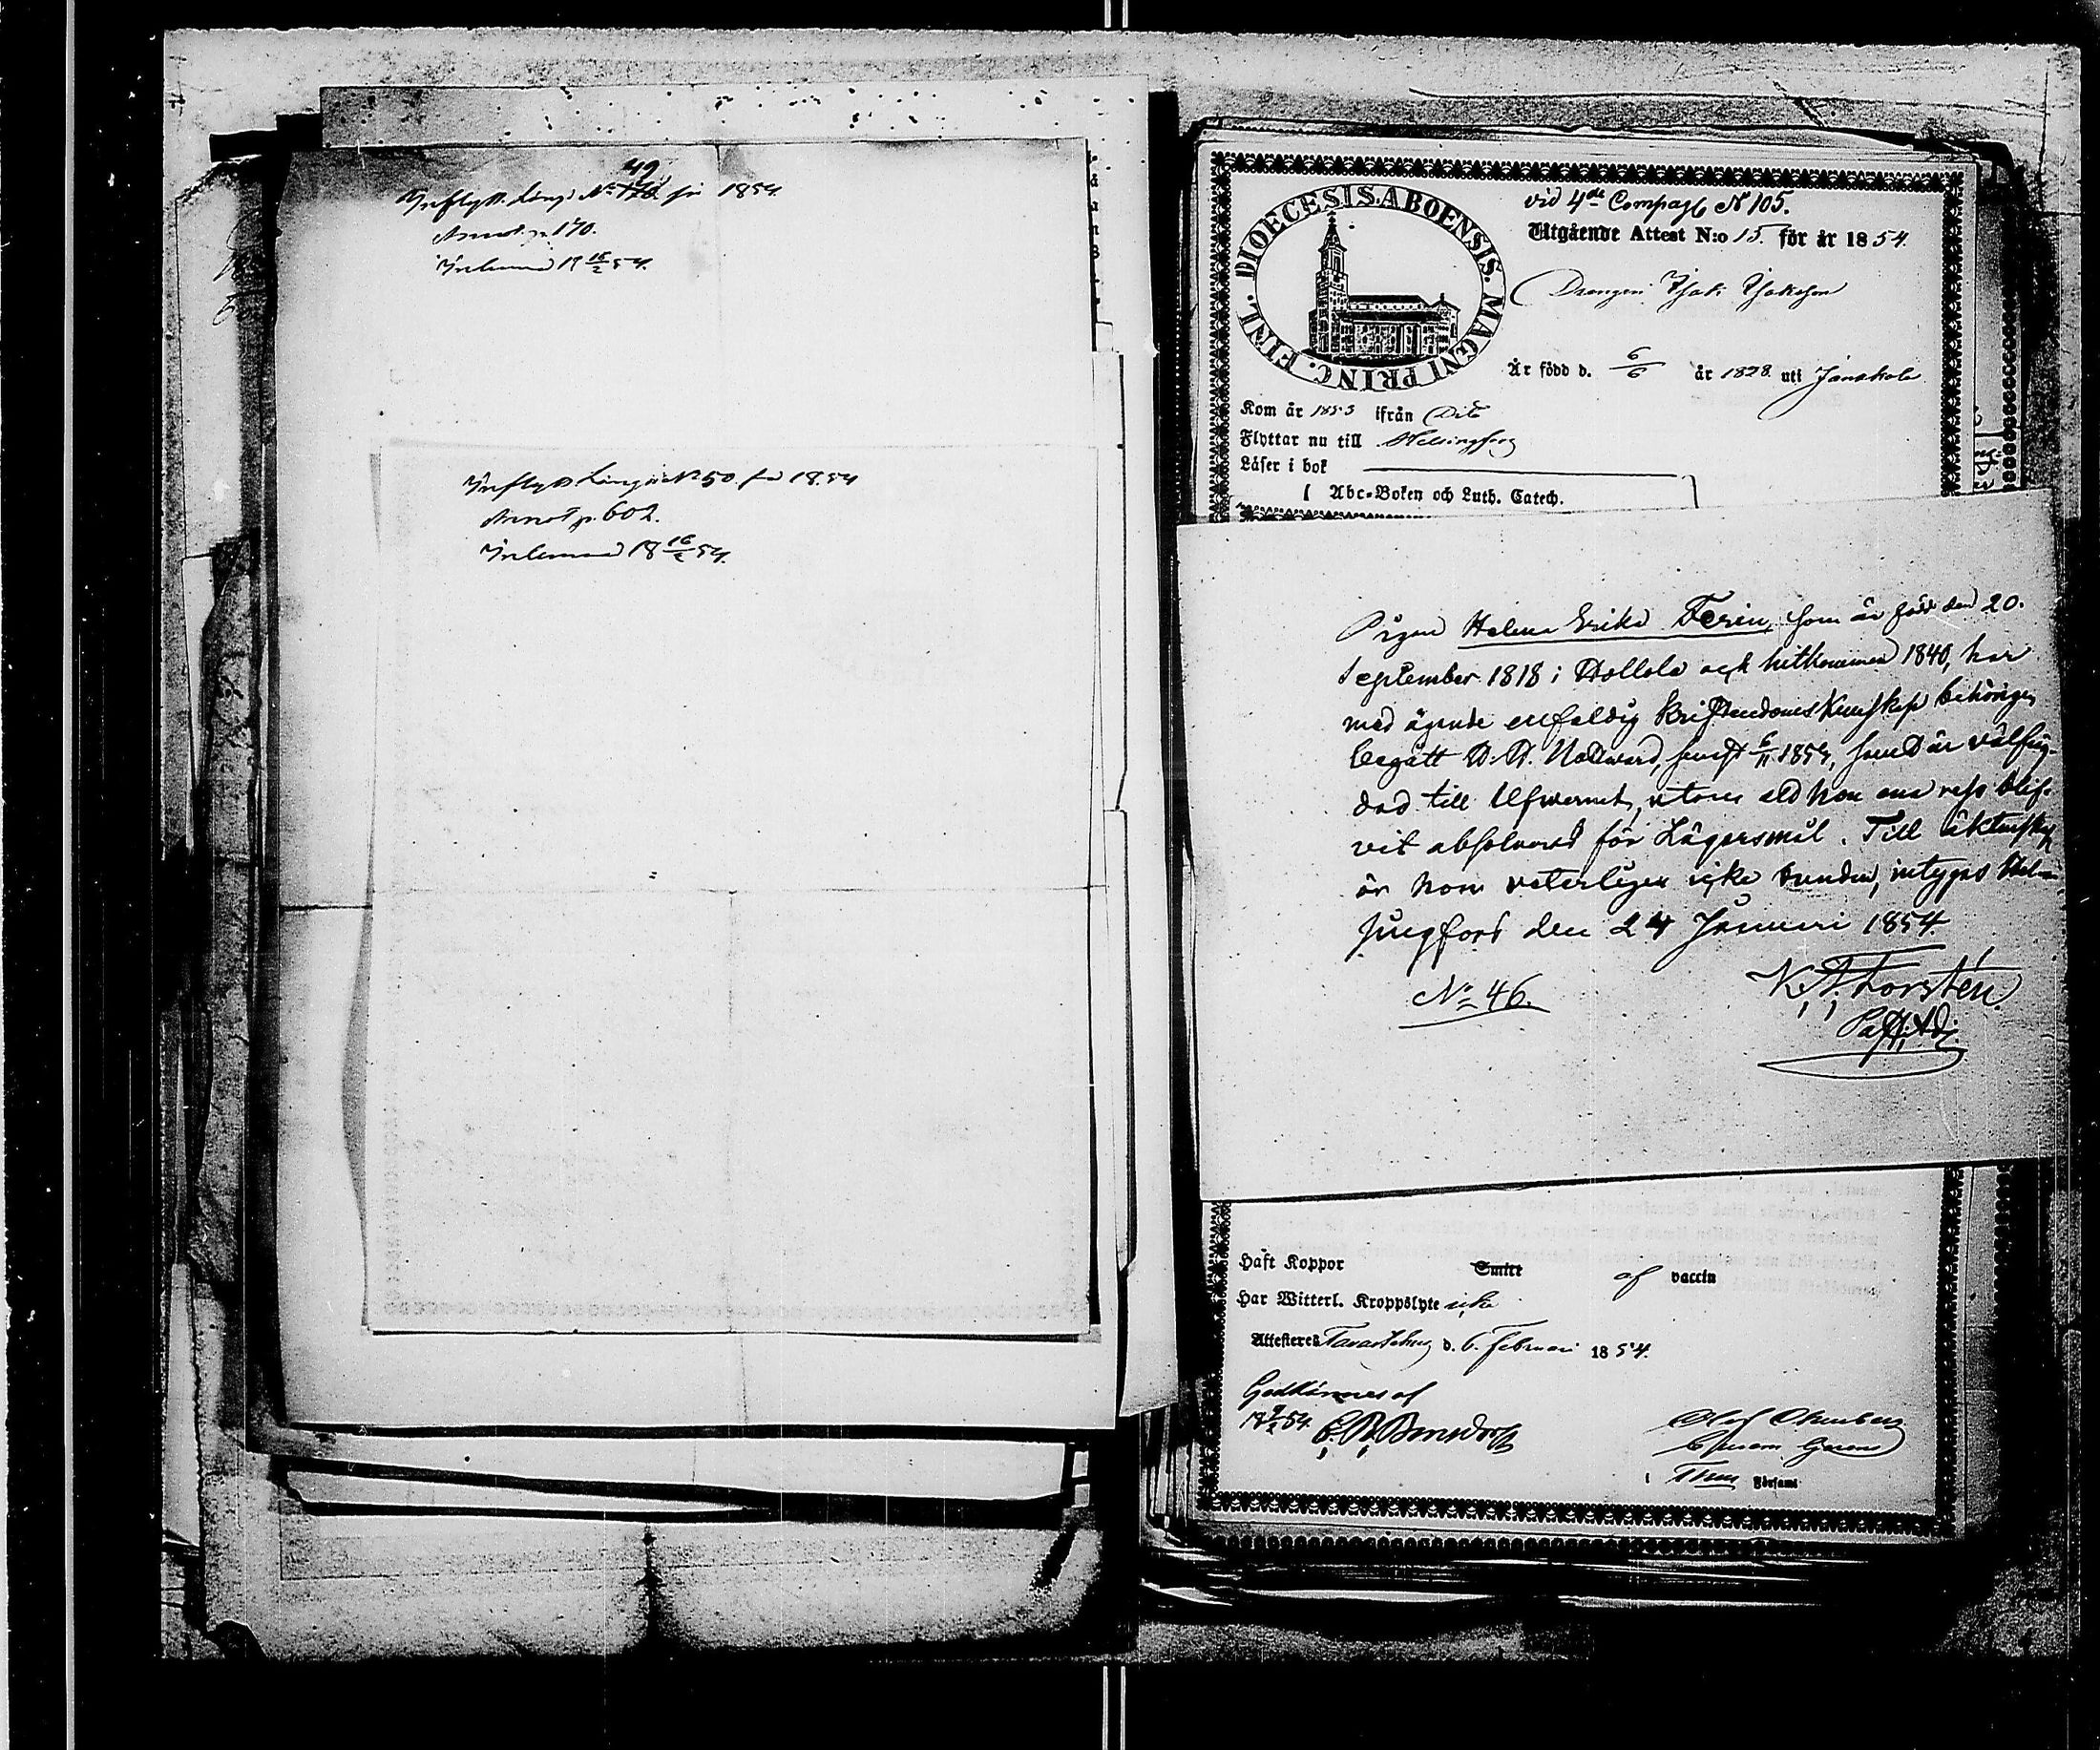 49
Inflytt. Läng. No 176 för 1854
Annot. p. 170.
Inlemnad 18 16/2 54.
Inflytt. Längd No 50. för 1854
Annot p. 602.
Inlemnad 18 16/2 54.
DIOECESIS. ABOENSIS. MAGNI PRINC. FINL.
vid 4de Comp. N 105.
Utgående Attest N:o 15. för år 1854.
Drengen Isak Isaksson
Är född d. 6/6 år 1828 uti Janakala
Kom år 1853 ifrån Dito
Flyttar nu till Helsingfors
Läser i bok
Abc-Boken och Luth. Catech.
Pigan Helena Erika Ferin, som är född den 20.
September 1818 i Hollola och hitkommen 1840, har
med ägande enfaldig kristendoms kunskap behörigen
begått H. H. Nattward, senast 6/11 1853, samt är välfräg-
dad till lefvernet, utom att hon ena reso blif-
vit absolverad för Lägersmål. Till äktenskap
är hon veterligen icke bunden, intygas Hel-
singfors den 24 Januari 1854.
No 46.
K. F. Forstén
Past. Adj.
Haft Koppor Smitt af vaccin
Har Witterl. Kroppslyte icke
Attesteres Tavastehus d. 6. Februari 1854.
Godkännes af
18 9/2 54.
Olof Okerberg
i Församl.